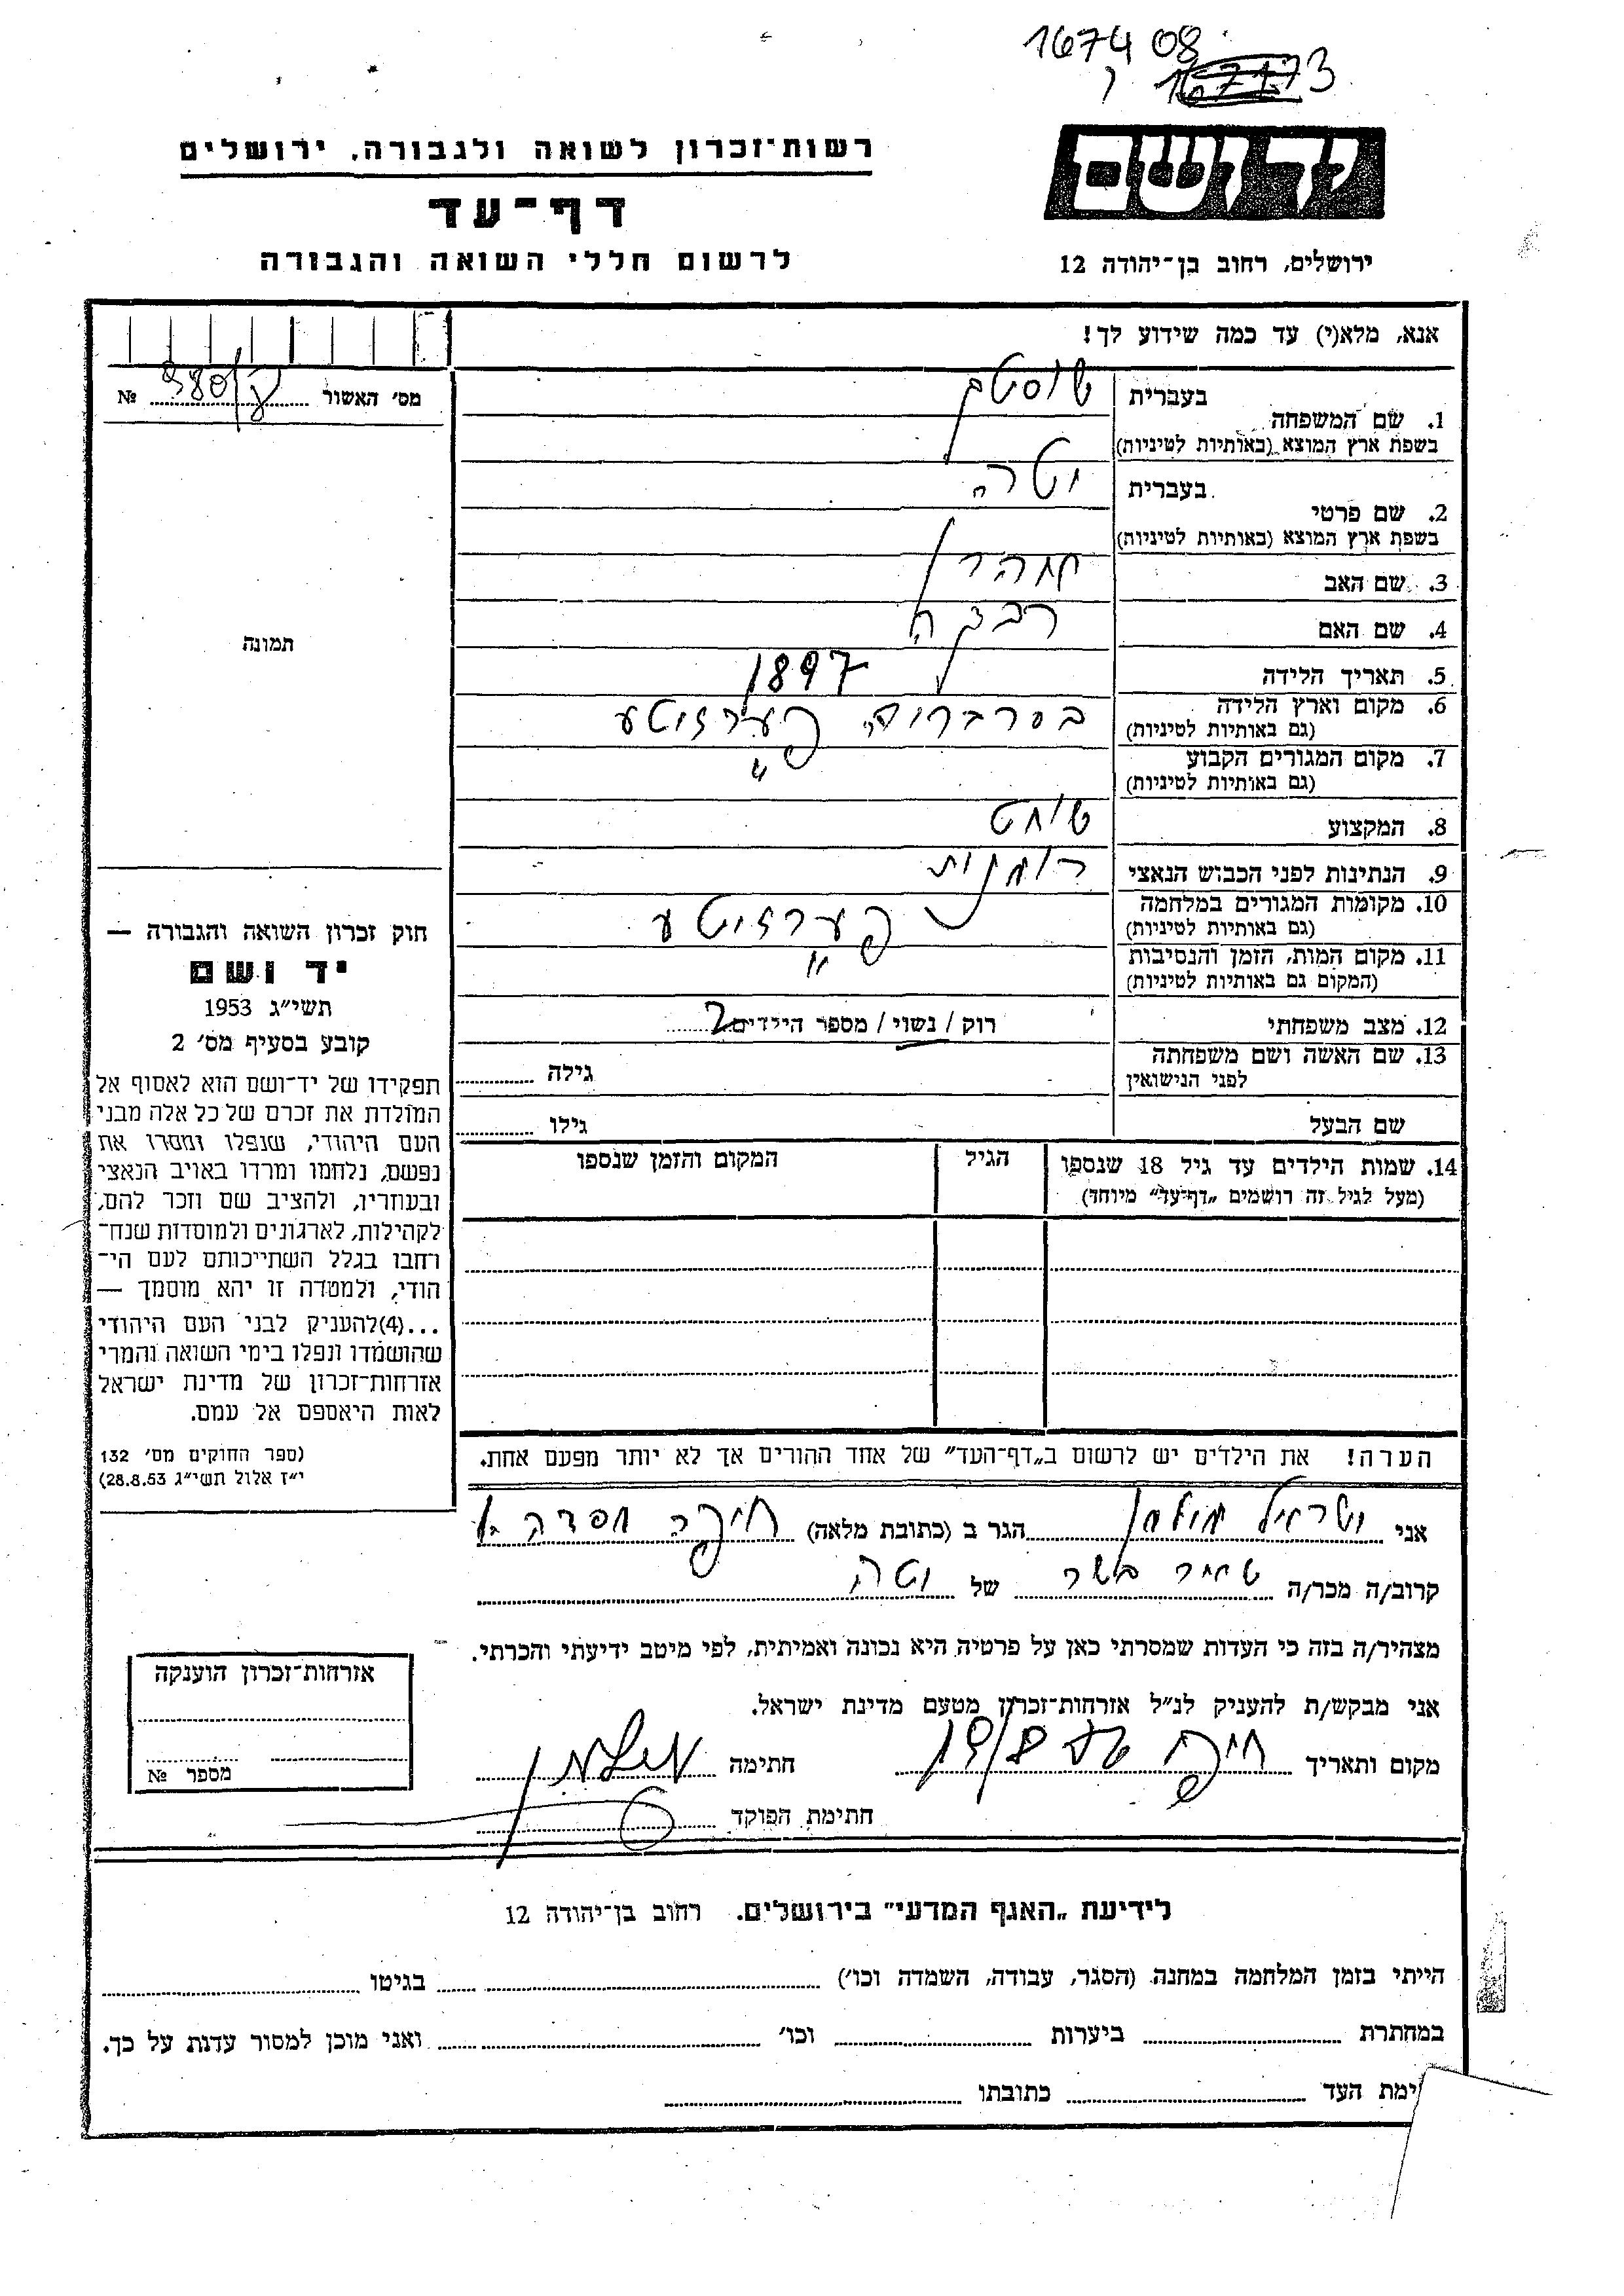 167408
רשות־זכרון לשואה ולגבורה, ירושלים
דף־עד
לרשום חללי השואה והגבורה
יד ושם
ירושלים, רחוב בן־יהודה 12
אנא, מלא(י) עד כמה שידוע לך!
מס׳ האשור № 980/
1. שם המשפחה
בעברית
בשפת ארץ המוצא (באותיות לטיניות)
2. שם פרטי
בעברית
בשפת ארץ המוצא (באותיות לטיניות)
3. שם האב
4. שם האם רבקה
5. תאריך הלידה 1897
6. מקום וארץ הלידה
(גם באותיות לטיניות)
7. מקום המגורים הקבוע "
(גם באותיות לטיניות)
8. המקצוע שוחט
9. הנתינות לפני הכבוש הנאצי רומנית
10. מקומות המגורים במלחמה
(גם באותיות לטיניות)
11. מקום המות, הזמן והנסיבות "
(המקום גם באותיות לטיניות)
12. מצב משפחתי רוק / נשוי / מספר הילדים 2
13. שם האשה ושם משפחתה
לפני הנישואין גילה
שם הבעל גילו
14. שמות הילדים עד גיל 18 שנספו
(מעל לגיל זה רושמים „דף־עד״ מיוחד)
הגיל
המקום והזמן שנספו
הערה! את הילדים יש לרשום ב„דף־העד״ של אחד ההורים אך לא יותר מפעם אחת.
תמונה
חוק זכרון השואה והגבורה —
יד ושם
תשי״ג 1953
קובע בסעיף מס׳ 2
תפקידו של יד־ושם הוא לאסוף אל
המולדת את זכרם של כל אלה מבני
העם היהודי, שנפלו ומסרו את
נפשם, נלחמו ומרדו באויב הנאצי
ובעוזריו, ולהציב שם וזכר להם,
לקהילות, לארגונים ולמוסדות שנח־
רחבו בגלל השתייכותם לעם הי־
הודי, ולמטרה זו יהא מוסמך —
...(4)להעניק לבני העם היהודי
שהושמדו ונפלו בימי השואה והמרי
אזרחות־זכרון של מדינת ישראל
לאות היאספם אל עמם.
(ספר החוקים מס׳ 132
י״ז אלול תשי״ג 28.8.53)
אני ישראל הגר ב (כתובת מלאה) חיפה
קרוב/ה מכר/ה שאיר בשר של
מצהיר/ה בזה כי העדות שמסרתי כאן על פרטיה היא נכונה ואמיתית, לפי מיטב ידיעתי והכרתי.
אני מבקש/ת להעניק לנ״ל אזרחות־זכרון מטעם מדינת ישראל.
מקום ותאריך חיפה חתימה
חתימת הפוקד
אזרחות־זכרון הוענקה
מספר №
לידיעת „האגף המדעי״ בירושלים. רחוב בן־יהודה 12
הייתי בזמן המלחמה במחנה (הסגר, עבודה, השמדה וכו׳) בגיטו
במחתרת ביערות וכו׳ ואני מוכן למסור עדות על כך.
ימת העד כתובתו